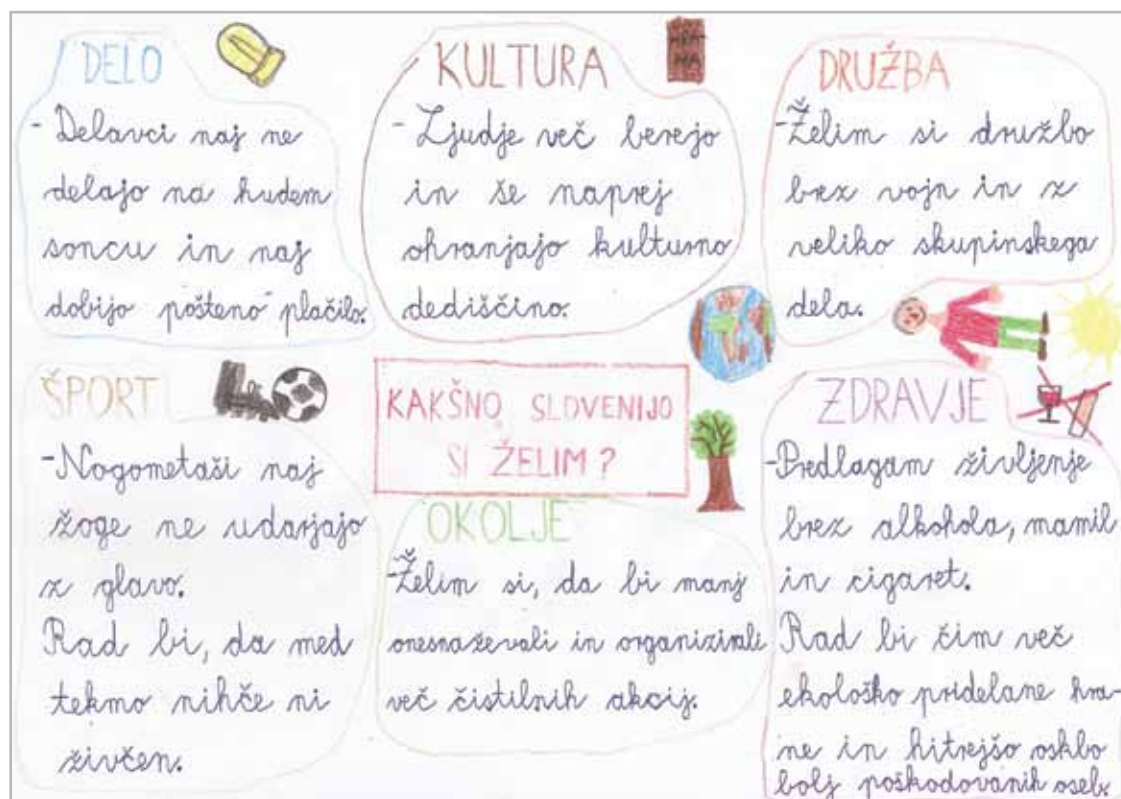 DELO
- Delavci naj ne
delajo na hudem
soncu in naj
dobijo pošteno plačilo.
KULTURA
HRA-
NA
- Ljudje več berejo
in še naprej
ohranjajo kulturno
dediščino.
DRUŽBA
- Želim si družbo
brez vojn in z
veliko skupinskega
dela.
ŠPORT
- Nogometaši naj
žoge ne udarjajo
z glavo.
Rad bi, da med
tekmo nihče ni
živčen.
KAKŠNO SLOVENIJO
SI ŽELIM?
OKOLJE
- Želim si, da bi manj
onesnaževali in organizirali
več čistilnih akcij.
ZDRAVJE
- Predlagam življenje
brez alkohola, mamil
in cigaret.
Rad bi čim več
ekološko pridelane hra-
ne in hitrejšo oskbo
bolj poškodovanih oseb.